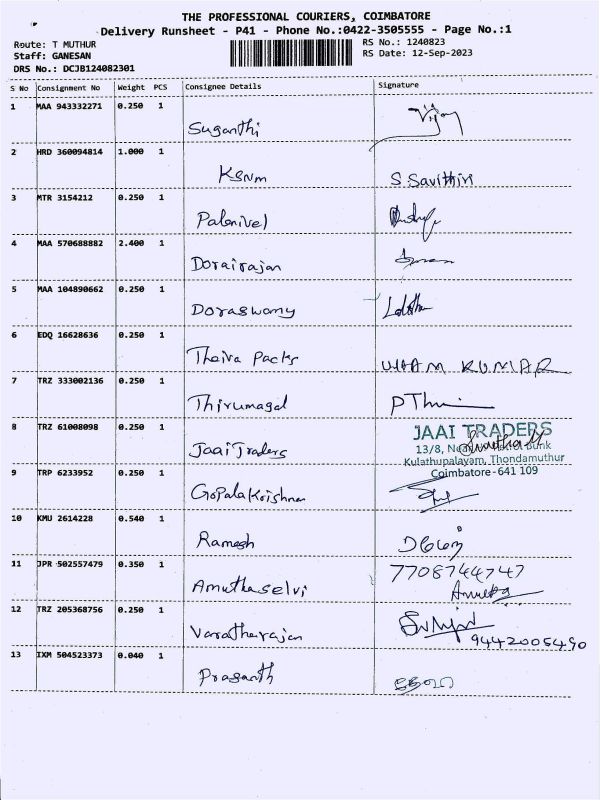 THE PROFESSIONAL COURIERS, COIMBATORE
Delivery Runsheet - P41 - Phone No.:0422-3505555 - Page No.:1
Route: T MUTHUR
RS No.: 1240823
Staff: GANESAN
RS Date: 12-Sep-2023
DRS No.: DCJB124082301
S No Consignment No Weight PCS Consignee Details Signature
1 MAA 943332271 0.250 1
Suganthi Vijay
2 HRD 360094814 1.000 1
KSNM S. Savithiri
3 MTR 3154212 0.250 1
Palanivel
4 MAA 570688882 2.400 1
Dorairajan
5 MAA 104890662 0.250 1
Doraswamy
6 EDQ 16628636 0.250 1
Thaira Packs KUMAR
7 TRZ 333002136 0.250 1
Thirumagal
8 TRZ 61008098 0.250 1
Jaai Traders
JAAI TRADERS
13/8, Near Petrol Bunk
Kulathupalayam, Thondamuthur
Coimbatore-641 109
9 TRP 6233952 0.250 1
GopalaKrishnan
10 KMU 2614228 0.540 1
Ramesh
11 JPR 502557479 0.350 1
7708744747
Amuthaselvi Amutha
12 TRZ 205368756 0.250 1
Varatharajan
9442005490
13 IXM 504523373 0.040 1
Prasanth